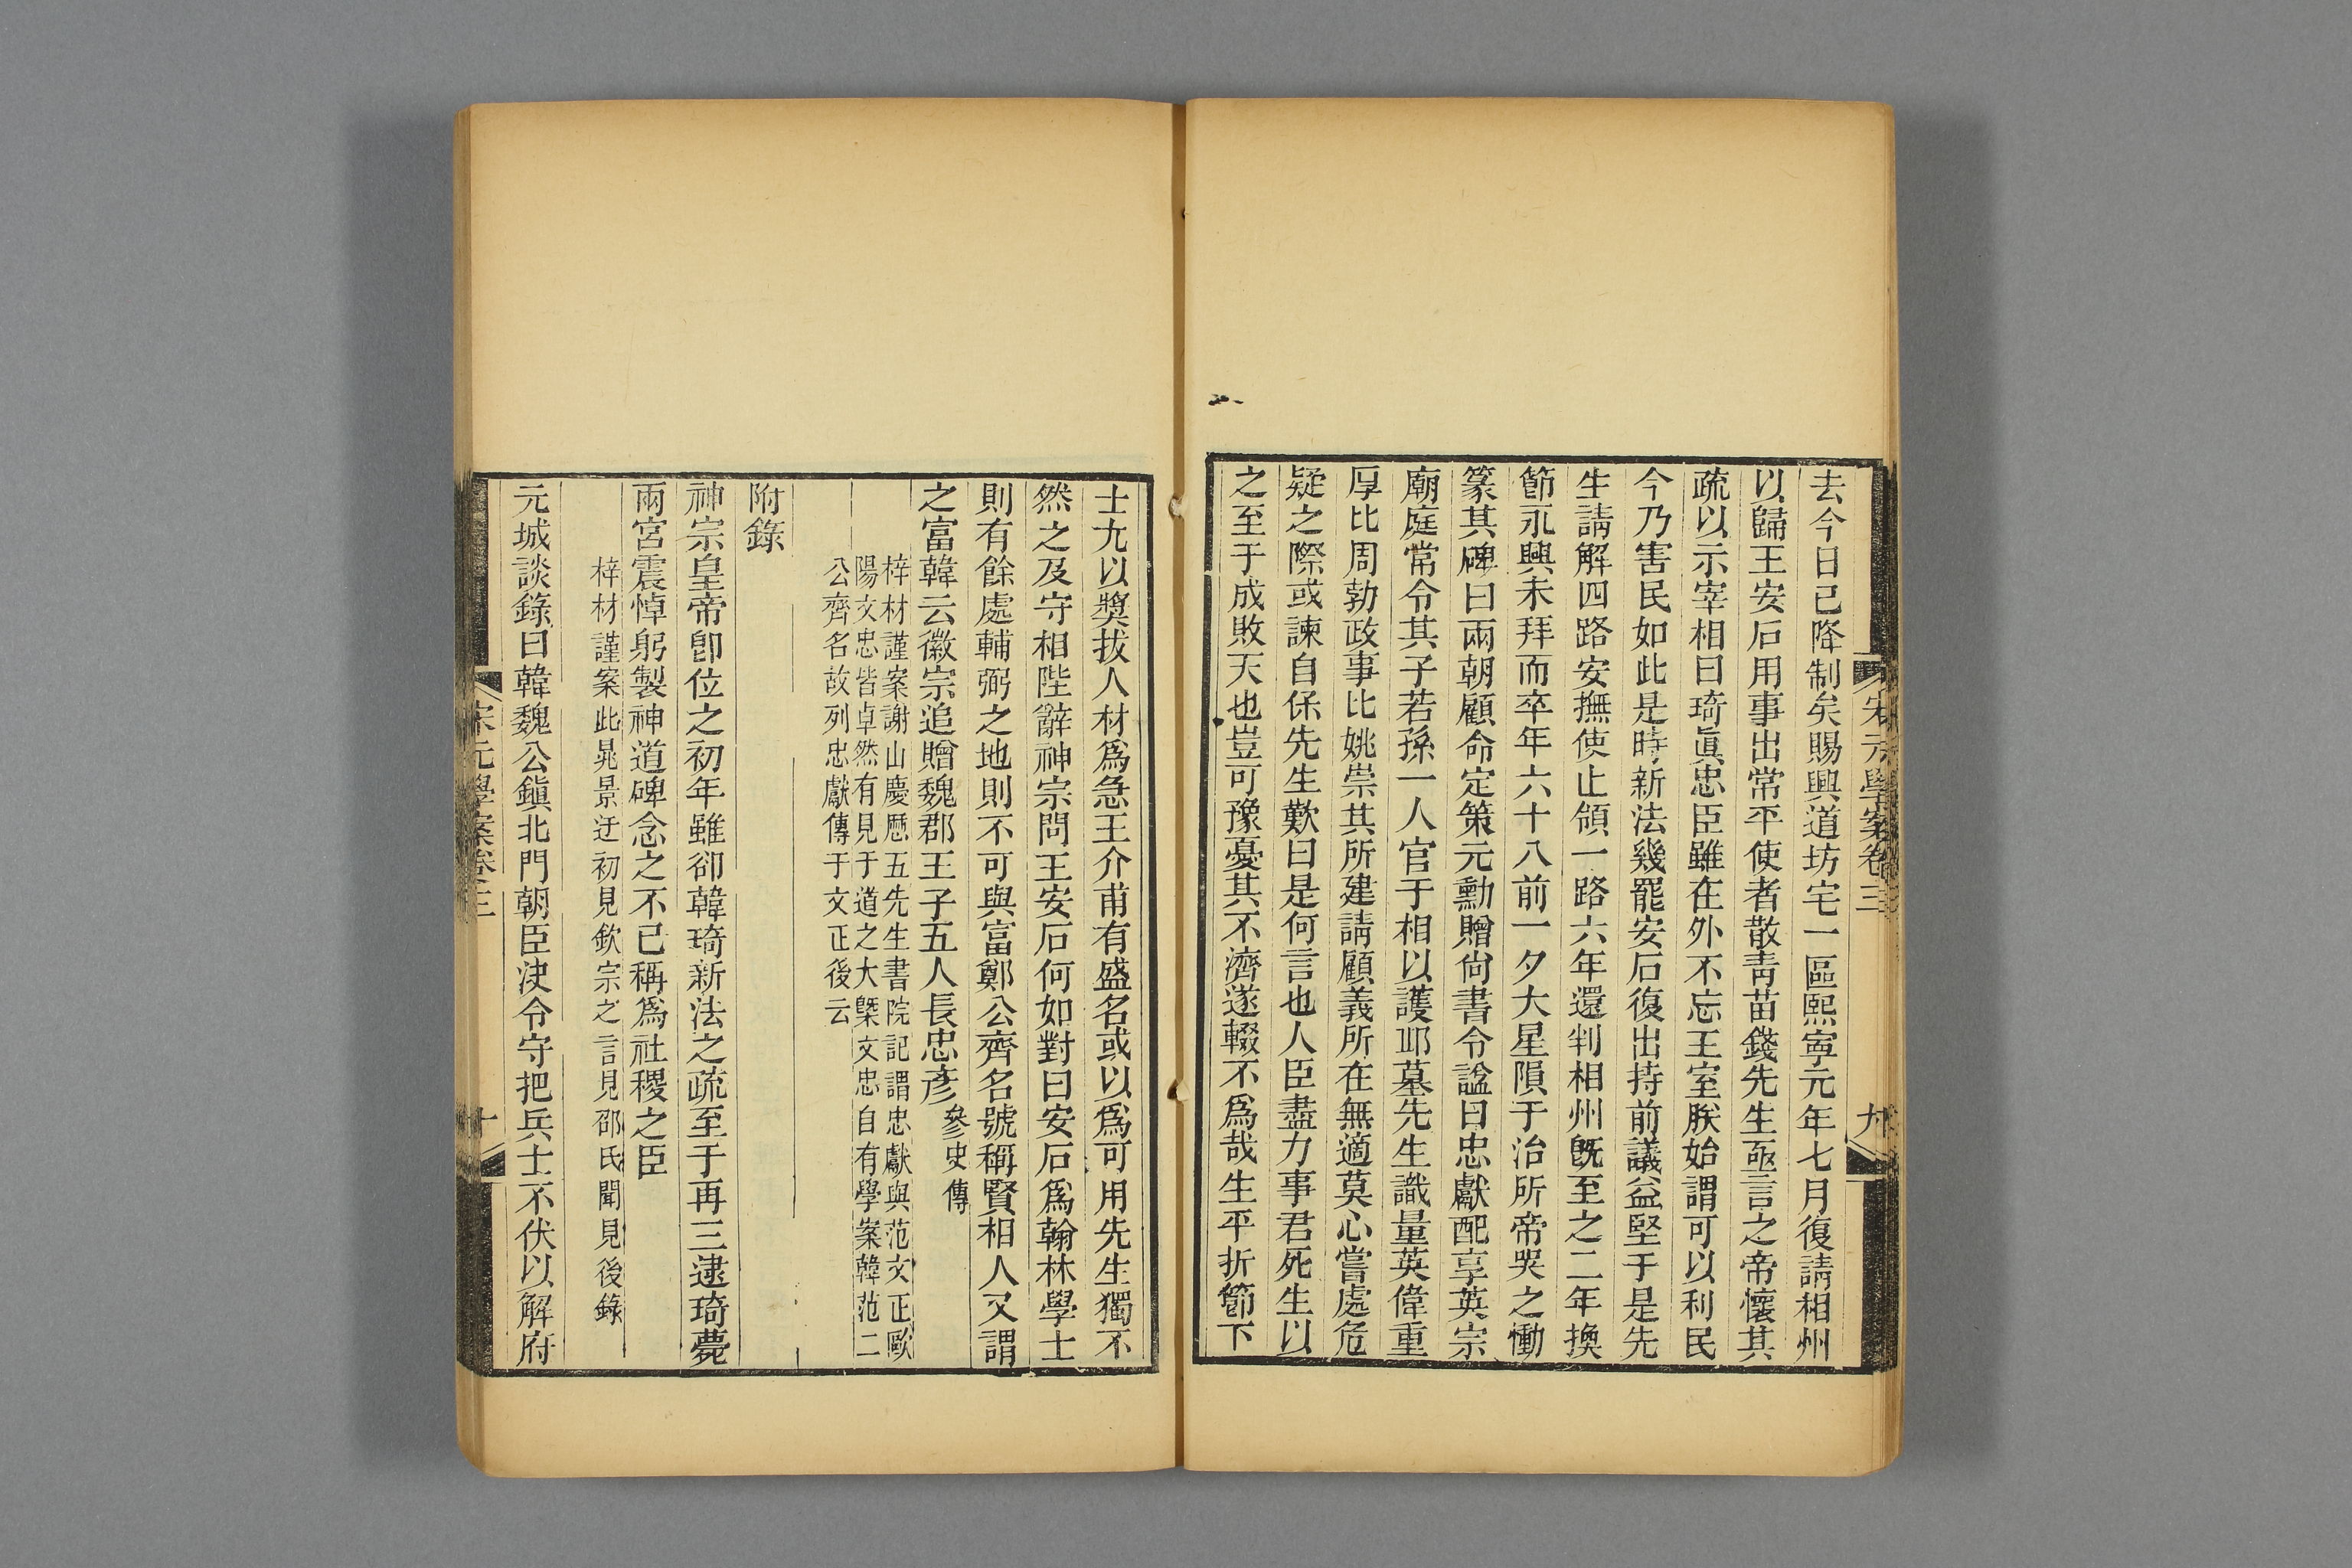 宋元學案卷三
九
去今日已降制矣賜興道坊宅一區熙寧元年七月復請相州
以歸王安石用事出常平使者散青苗錢先生亟言之帝懷其
疏以示宰相曰琦眞忠臣雖在外不忘王室朕始謂可以利民
今乃害民如此是時新法幾罷安石復出持前議益堅于是先
生請解四路安撫使止領一路六年還判相州旣至之二年換
節永興未拜而卒年六十八前一夕大星隕于治所帝哭之慟
篆其碑曰兩朝顧命定策元勳贈尙書令諡曰忠獻配享英宗
廟庭常令其子若孫一人官于相以護邱墓先生識量英偉重
厚比周勃政事比姚崇其所建請顧義所在無適莫心嘗處危
疑之際或諫自保先生歎曰是何言也人臣盡力事君死生以
之至于成敗天也豈可豫憂其不濟遂輟不爲哉生平折節下
士尤以獎拔人材爲急王介甫有盛名或以爲可用先生獨不
然之及守相陛辭神宗問王安石何如對曰安石爲翰林學士
則有餘處輔弼之地則不可與富鄭公齊名號稱賢相人又謂
之富韓云徽宗追贈魏郡王子五人長忠彥參史傳
梓材謹案謝山慶曆五先生書院記謂忠獻與范文正歐
陽文忠皆卓然有見于道之大槩文忠自有學案韓范二
公齊名故列忠獻傳于文正後云
附錄
神宗皇帝卽位之初年雖卻韓琦新法之疏至于再三逮琦薨
兩宮震悼躬製神道碑念之不已稱爲社稷之臣
梓材謹案此晁景迂初見欽宗之言見邵氏聞見後錄
元城談錄曰韓魏公鎭北門朝臣決令守把兵士不伏以解府
宋元學案卷三
十